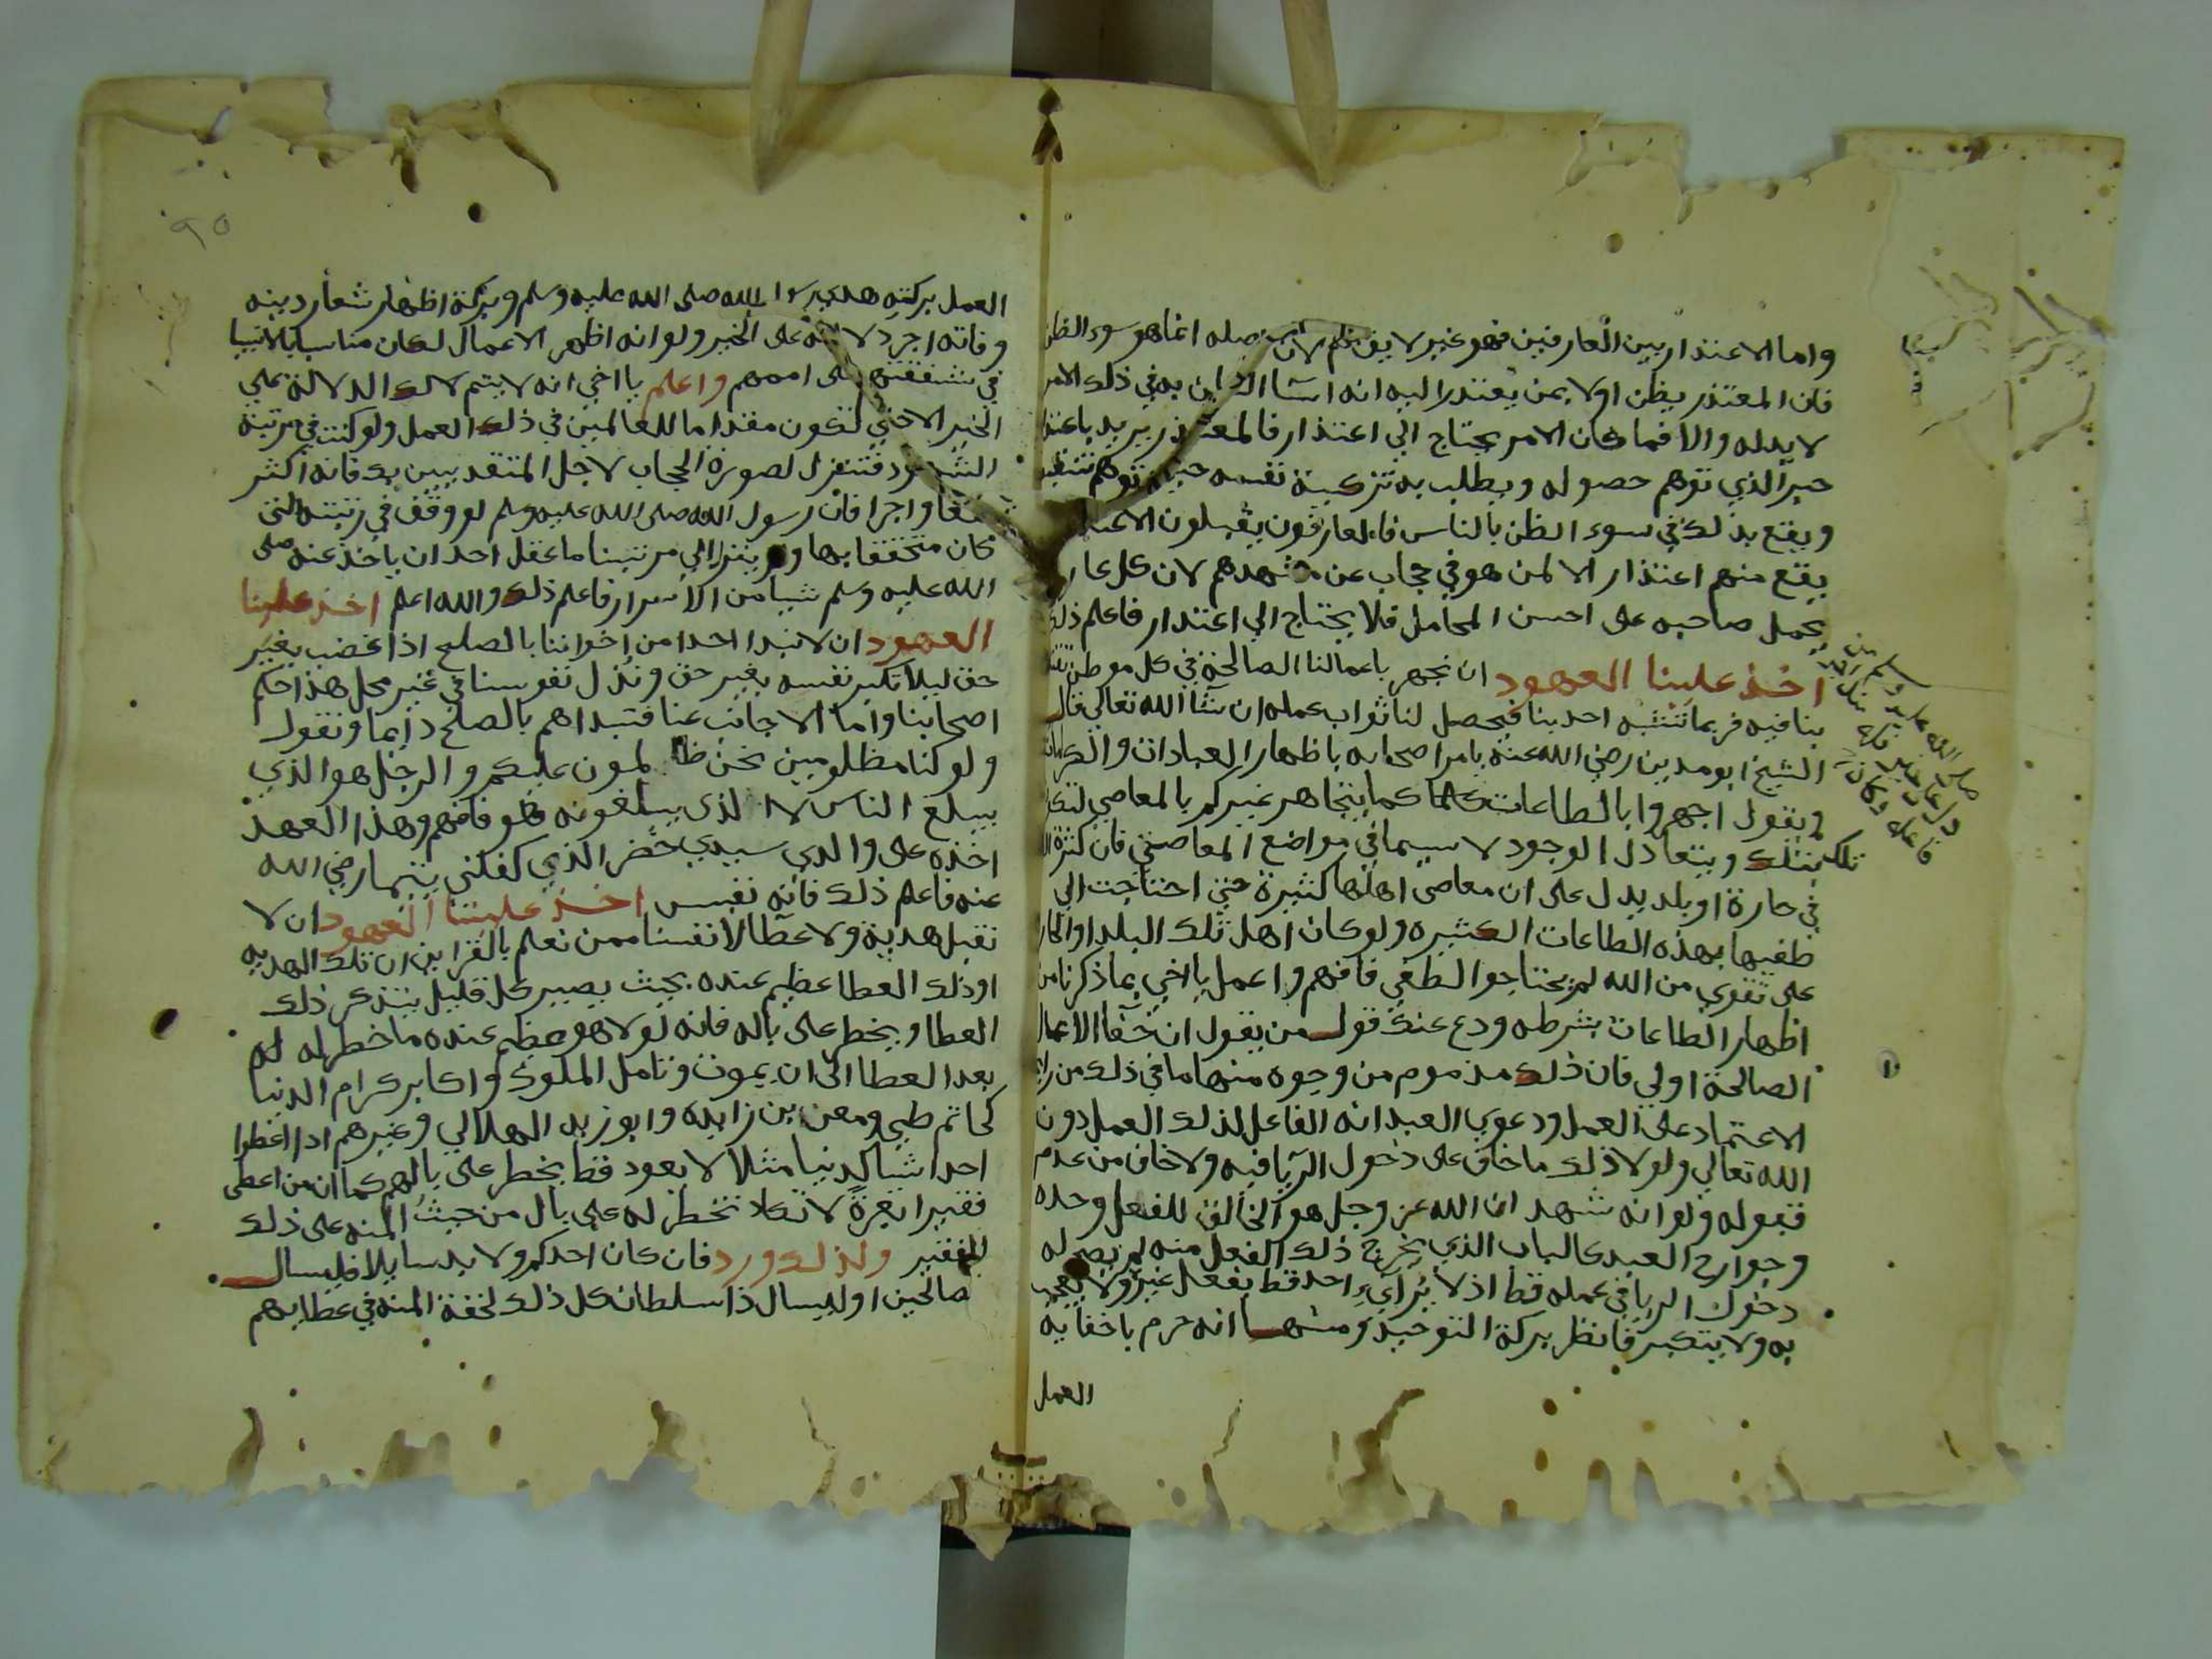 واما الاعتذار بين العارفين فهو غير لايق بهم لان اصله انما هو سوء الظن
فان المعتذر يظن اولا بمن يعتذر اليه انه اسا الظن به في ذلك الامر
لا بد له والا فما كان الامر يحتاج الي اعتذار فالمعتذر يريد باعتذا
جبر الذي توهم حصوله ويطلب به تزكية نفسه حين توهم
ويقع بذلك في سوء الظن بالناس فالعارفون يقبلون الاعتذار
يقع منهم اعتذار الا لمن هو في حجاب عن مشهدهم لان كل عارف
يحمل صاحبه على احسن المحامل فلا يحتاج الي اعتذار فاعلم ذلك
اخذ علينا العهود ان نجهر باعمالنا الصالحة في كل موطن
ينافيه فربما تشبه احد بنا فيحصل لنا ثواب عمله ان شا الله تعالى قال
الشيخ ابو مدين رضي الله عنه يامر اصحابه باظهار العبادات والكرامات
ويقول اجهروا بالطاعات كما يتجاهر غيركم بالمعاصي لتكون
تلك بتلك ويتعادل الوجود لا سيما في مواضع المعاصي فان كثرة
في حارة او بلد يدل على ان معاصي اهلها كثيرة حتي احتاجت الي
طفيها بهذه الطاعات الكثيره ولو كان اهل تلك البلد او الحارة
على تقوي من الله لم يحتاجوا لطفي فافهم واعمل يا اخي بما ذكرنا من
اظهار الطاعات بشرطه ودع عنك قول من يقول ان خفا الاعمال
الصالحة اولي فان ذلك مذموم من وجوه منها ما في ذلك من
الاعتماد على العمل ودعوي العبد انه الفاعل لذلك العمل دون
الله تعالي ولولا ذلك ما خاف على دخول الريا فيه ولا خاف من عدم
قبوله ولو انه شهد ان الله عز وجل هو الخالق للفعل وحده
وجوارح العبد كالباب الذي يخرج ذلك الفعل منه لم يصح له
دخول الريا في عمله قط اذ لا يرآئي احد قط بفعل غيره ولا يعجب
به ولا يتكبر فانظر بركة التوحيد ومنها انه حرم باخفايه
العمل
العمل بركته هدي رسول الله صلى الله عليه وسلم وبركة اظهار شعار دينه
وفاته اجر دلالته على الخير ولو انه اظهر الاعمال لكان مناسبا بالانبيا
في شفقتهم على اممهم واعلم يا اخي انه لا يتم لك الدلالة على
الخير الاخي لتكون مقتدا ما للعالمين في ذلك العمل ولو كنت في مرتبة
الشهود فتنزل لصورة الحجاب لاجل المقتديين بك فانه اكثر
نفعا واجرا فان رسول الله صلى الله عليه وسلم لو وقف في رتبته التي
كان متحققا بها ولم ينزل الي مرتبتنا ما عقل احد ان ياخذ عنه صلى
الله عليه وسلم شيا من الاسرار فاعلم ذلك والله اعلم اخذ علينا
العهود ان لا نبدا احدا من اخواننا بالصلح اذا غضب بغير
حق ليلا تكبر نفسه بغير حق ونذل نفوسنا في غير محل هذا حكم
اصحابنا واما الاجانب عنا فنبداهم بالصلح دايما ونقول
ولو كنا مظلومين نحن ظالمون عليكم والرجل هو الذي
يبلع الناس لا الذي يبلعونه فهو فافهم وهذا العهد
اخذه على والدي سيدي خضر الذي كفلني يتيما رضي الله
عنه فاعلم ذلك فانه نفيس اخذ علينا العهود ان لا
نقبل هدية ولا عطآ لانفسنا ممن نعلم بالقراين ان تلك الهديه
او ذلك العطا عظيم عنده بحيث يصير كل قليل يتذكر ذلك
العطا ويخطر على باله فانه لولا هو عظيم عنده ما خطر له
بعد العطا الى ان يموت وتامل الملوك واكابر كرام الدنيا
كحاتم طي ومعن بن زايده وابو زيد الهلالي وغيرهم اذا اعطوا
احدا شيا كدنيا مثلا لا يعود قط يخطر على بالهم كما ان من اعطى
فقيرا تمرة لا تكاد تخطر له على بال من حيث المنه على ذلك
الفقير ولذلك ورد فان كان احدكم ولا بد سايلا فليسال
صالحين او ليسال ذا سلطان كل ذلك لخفة المنه في عطايهم